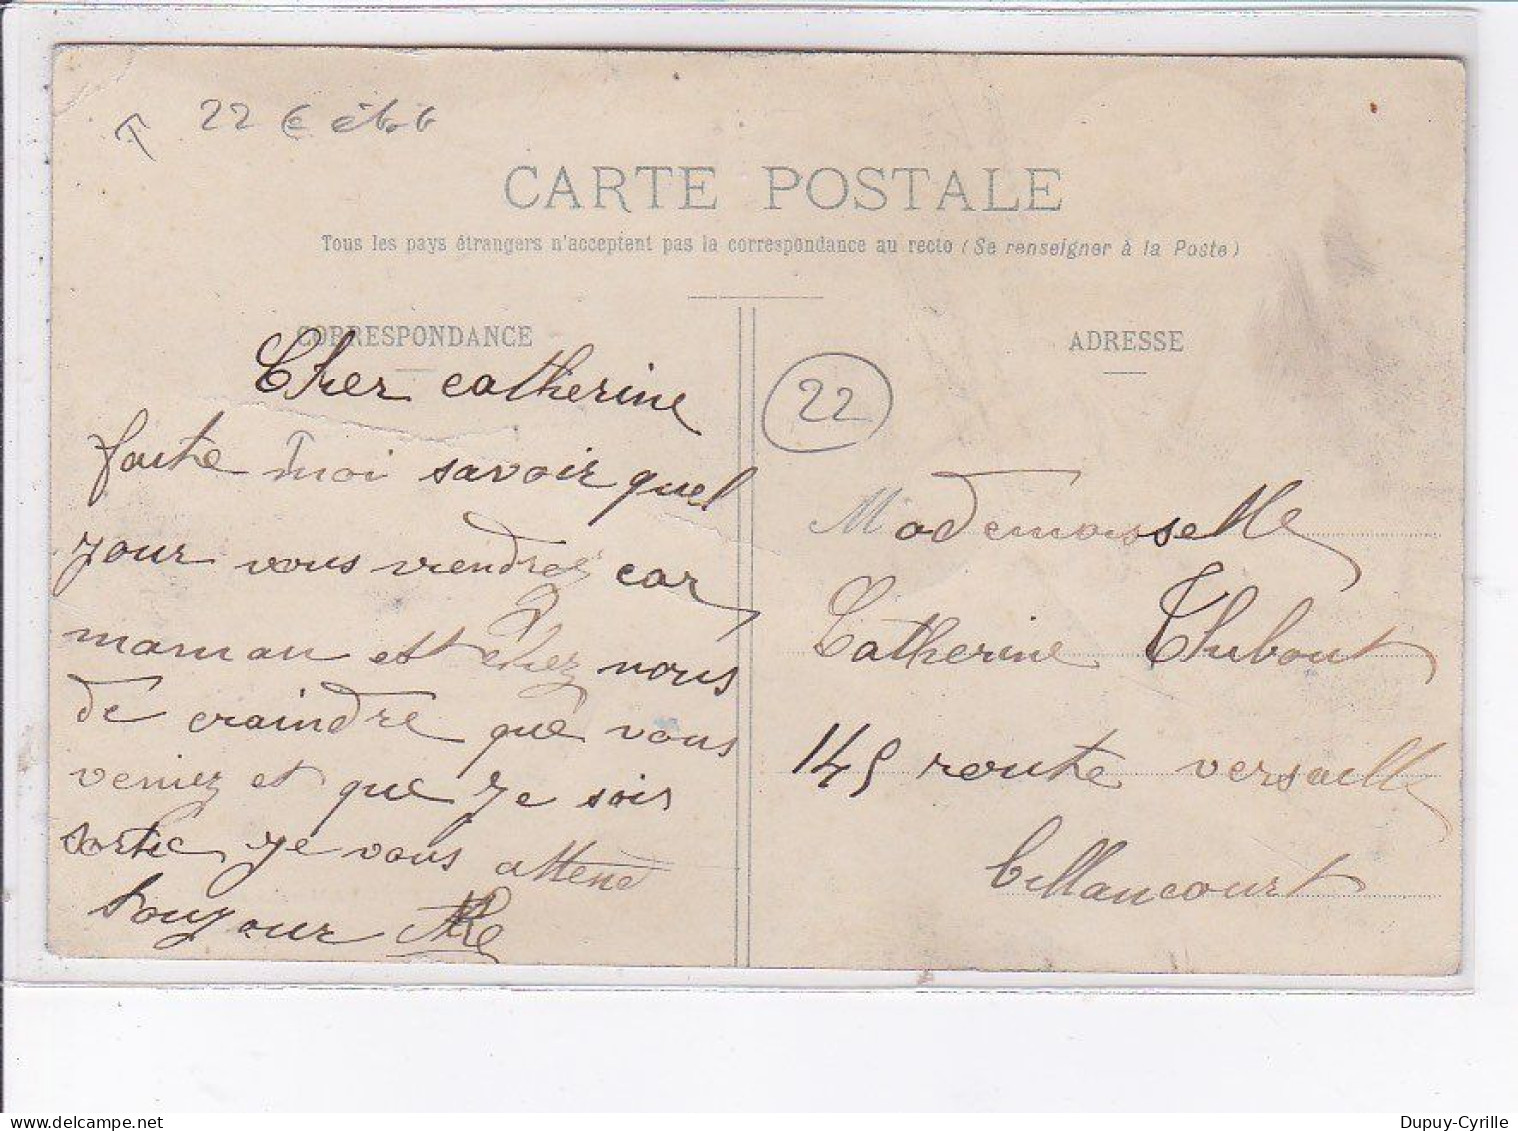 22
CARTE POSTALE
Tous les pays étrangers n'acceptent pas la correspondance au recto (Se renseigner à la Poste)
CORRESPONDANCE
Cher catherine
faite moi savoir quel
jour vous viendrez car
maman est chez nous
de craindre que vous
veniez et que je sois
sortie je vous attend
bonjour
ADRESSE
22
Mademoisselle
Catherine Thubout
145 route versaille
billancourt
Dupuy-Cyrille